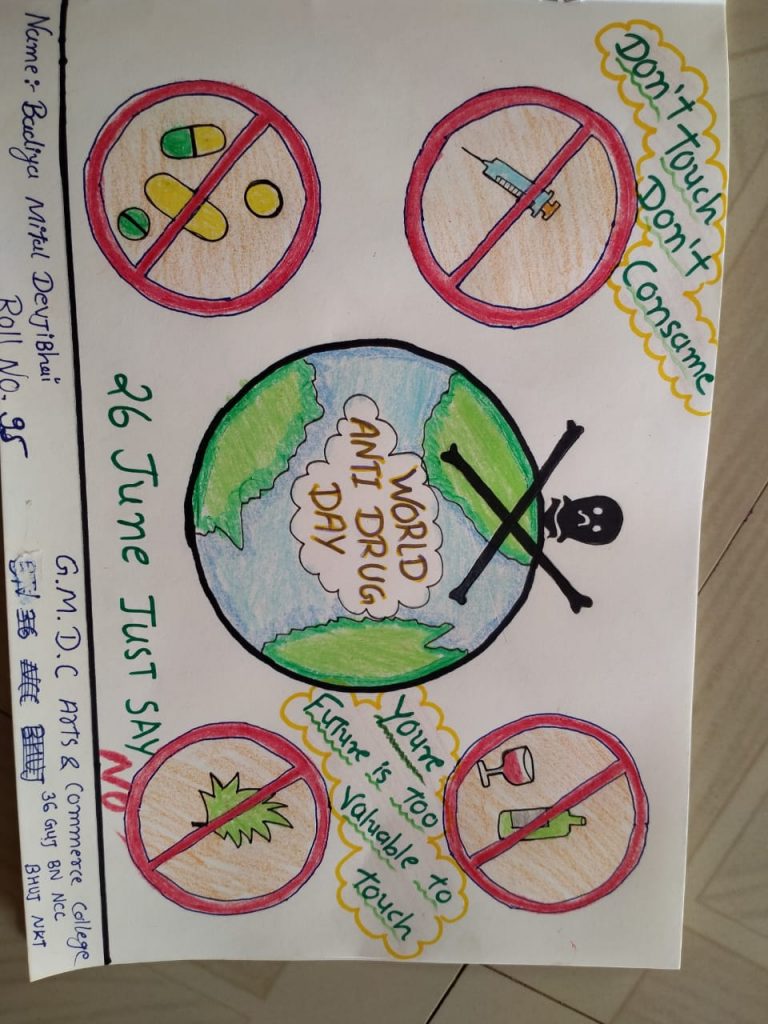 Don't touch
Don't Consame
WORLD
ANTI DRUG
DAY
Youre
Future is too
valuable to
touch
26 June Just SAY NO
Name:- Badiya Mital DevjiBhai
Roll No. 95
G.M.D.C Arts & Commerce College
36 Guj BN NCC
BHUJ NKT